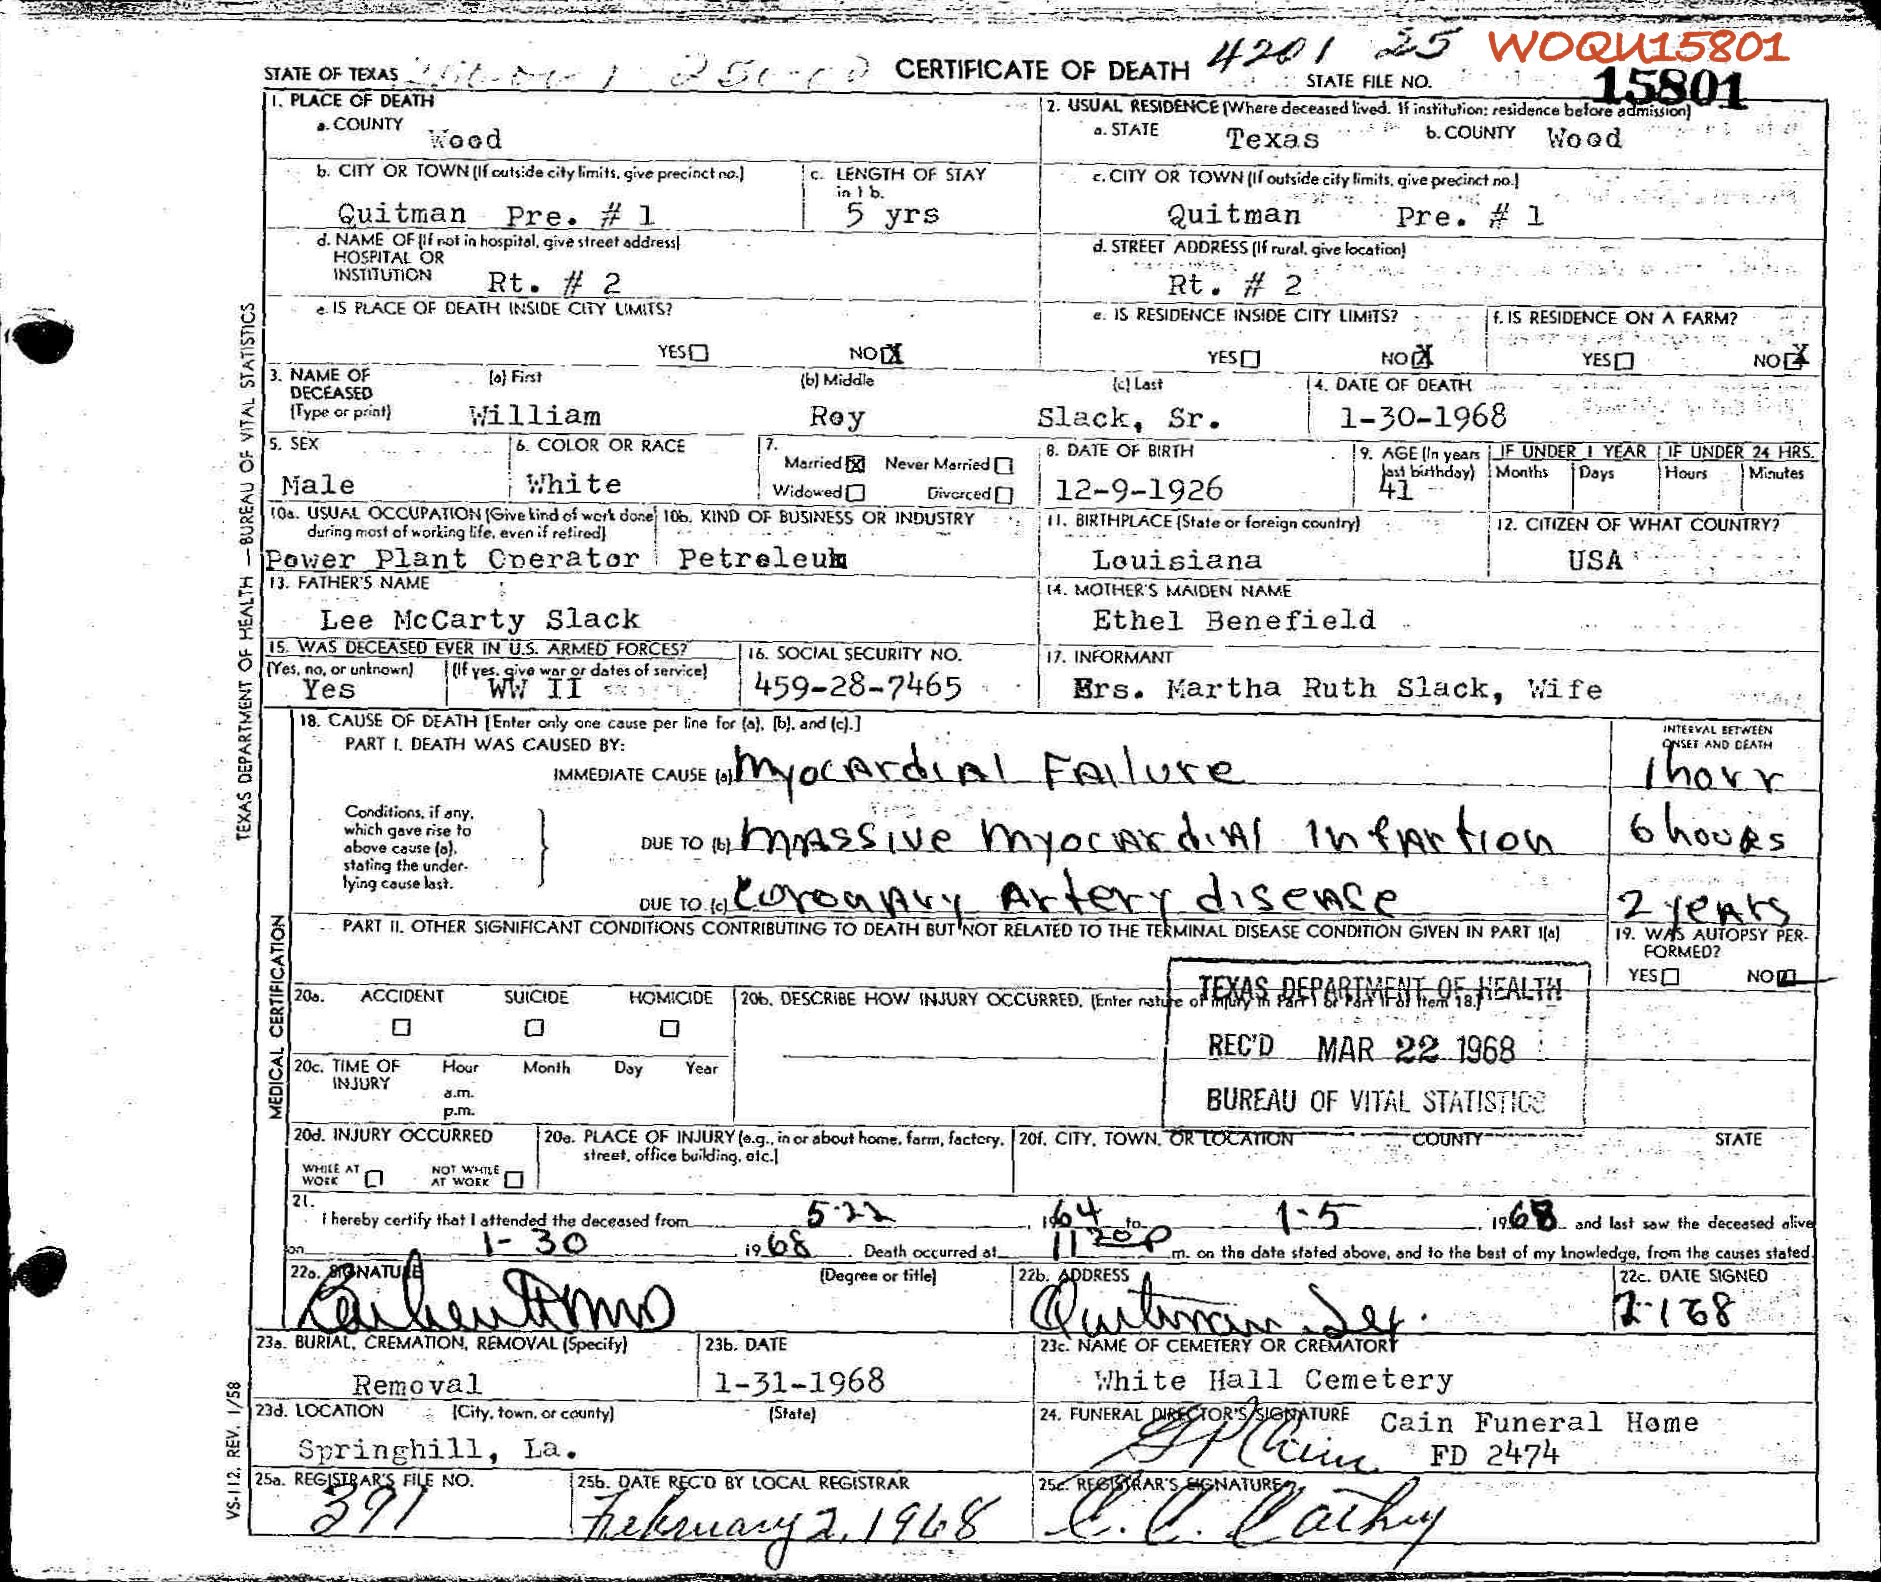 4201 25 WOQU15801
STATE OF TEXAS CERTIFICATE OF DEATH STATE FILE NO. 15801
1. PLACE OF DEATH
a. COUNTY
Wood
2. USUAL RESIDENCE (Where deceased lived. If institution: residence before admission)
a. STATE Texas b. COUNTY Wood
b. CITY OR TOWN (If outside city limits, give precinct no.)
Quitman Pre. # 1
c. LENGTH OF STAY
in 1 b.
5 yrs
c. CITY OR TOWN (If outside city limits, give precinct no.)
Quitman Pre. # 1
d. NAME OF (If not in hospital, give street address)
HOSPITAL OR
INSTITUTION Rt. # 2
d. STREET ADDRESS (If rural, give location)
Rt. # 2
e. IS PLACE OF DEATH INSIDE CITY LIMITS?
YES NO X
e. IS RESIDENCE INSIDE CITY LIMITS?
YES NO X
f. IS RESIDENCE ON A FARM?
YES NO X
3. NAME OF
DECEASED
(Type or print)
(a) First (b) Middle (c) Last
William Roy Slack, Sr.
4. DATE OF DEATH
1-30-1968
5. SEX
Male
6. COLOR OR RACE
White
7.
Married X Never Married
Widowed Divorced
8. DATE OF BIRTH
12-9-1926
9. AGE (In years
last birthday)
41
IF UNDER 1 YEAR
Months Days
IF UNDER 24 HRS.
Hours Minutes
10a. USUAL OCCUPATION (Give kind of work done
during most of working life, even if retired)
Power Plant Operator
10b. KIND OF BUSINESS OR INDUSTRY
Petroleum
11. BIRTHPLACE (State or foreign country)
Louisiana
12. CITIZEN OF WHAT COUNTRY?
USA
13. FATHER'S NAME
Lee McCarty Slack
14. MOTHER'S MAIDEN NAME
Ethel Benefield
15. WAS DECEASED EVER IN U.S. ARMED FORCES?
(Yes, no, or unknown) (If yes, give war or dates of service)
Yes WW II
16. SOCIAL SECURITY NO.
459-28-7465
17. INFORMANT
Mrs. Martha Ruth Slack, Wife
18. CAUSE OF DEATH [Enter only one cause per line for (a), (b), and (c).]
PART I. DEATH WAS CAUSED BY:
IMMEDIATE CAUSE (a) Myocardial Failure
INTERVAL BETWEEN
ONSET AND DEATH
1 hour
Conditions, if any,
which gave rise to
above cause (a),
stating the under-
lying cause last.
DUE TO (b) Massive Myocardial Infartion
6 hours
DUE TO (c) Coronary Artery disease
2 years
PART II. OTHER SIGNIFICANT CONDITIONS CONTRIBUTING TO DEATH BUT NOT RELATED TO THE TERMINAL DISEASE CONDITION GIVEN IN PART I(a)
19. WAS AUTOPSY PER-
FORMED?
YES NO
20a. ACCIDENT SUICIDE HOMICIDE
20b. DESCRIBE HOW INJURY OCCURRED. (Enter nature of injury in Part I or Part II of Item 18.)
TEXAS DEPARTMENT OF HEALTH
REC'D MAR 22 1968
BUREAU OF VITAL STATISTICS
20c. TIME OF
INJURY
Hour Month Day Year
a.m.
p.m.
20d. INJURY OCCURRED
WHILE AT
WORK
NOT WHILE
AT WORK
20e. PLACE OF INJURY (e.g., in or about home, farm, factory,
street, office building, etc.)
20f. CITY, TOWN, OR LOCATION COUNTY STATE
21.
I hereby certify that I attended the deceased from 5-22, 1964 to 1-5, 1968 and last saw the deceased alive
on 1-30, 1968. Death occurred at 11 20 p m. on the date stated above, and to the best of my knowledge, from the causes stated.
22a. SIGNATURE (Degree or title)
22b. ADDRESS
Quitman Tex.
22c. DATE SIGNED
2-1 68
23a. BURIAL, CREMATION, REMOVAL (Specify)
Removal
23b. DATE
1-31-1968
23c. NAME OF CEMETERY OR CREMATORY
White Hall Cemetery
23d. LOCATION (City, town, or county) (State)
Springhill, La.
24. FUNERAL DIRECTOR'S SIGNATURE Cain Funeral Home
FD 2474
25a. REGISTRAR'S FILE NO.
391
25b. DATE REC'D BY LOCAL REGISTRAR
February 2, 1968
25c. REGISTRAR'S SIGNATURE
C. C. Cathey
TEXAS DEPARTMENT OF HEALTH — BUREAU OF VITAL STATISTICS
MEDICAL CERTIFICATION
VS-112, REV. 1/58